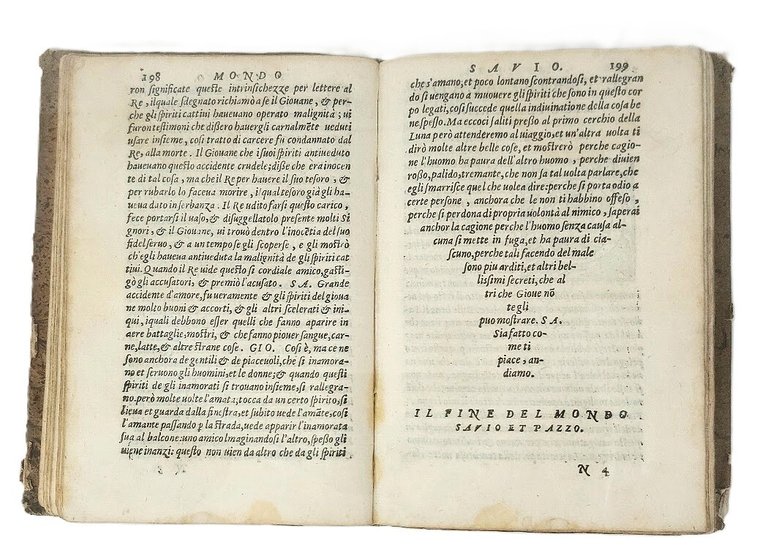 198 MONDO
ron significate queste intrinsichezze per lettere al
Re, ilquale sdegnato richiamò a se il Giouane, & per-
che gli spiriti cattiui haueuano operato malignità; ui
furon testimoni che dißero hauergli carnalmẽte ueduti
usare insieme, cosi tratto di carcere fu condannato dal
Re, alla morte. Il Giouane che i suoi spiriti antiueduto
haueuano questo accidente crudele; diße che era inocen
te di tal cosa, ma che il Re per hauere il suo tesoro, &
per rubarlo lo faceua morire, il qual tesoro già gli ha-
ueua dato in serbanza. Il Re udito farsi questo carico,
fece portarsi il uaso, & disuggellatolo presente molti Si
gnori, & il Giouane, ui trouò dentro l'inocẽtia del suo
fidel seruo, & a un tempo egli scoperse, e gli mostrò
ch'egli haueua antiueduta la malignità de gli spiriti cat
tiui. Quando il Re uide questo si cordiale amico, gasti-
gò gli accusatori, & premiò l'accusato. SA. Grande
accidente d'amore, fu ueramente & gli spiriti del gioua
ne molto buoni & accorti, & gli altri scelerati & ini-
qui, iquali debbono esser quelli che fanno apparire in
aere battaglie, mostri, & che fanno piouer sangue, car-
ne, latte, & altre strane cose. GIO. Cosi è, ma ce ne
sono anchora de gentili & de piaceuoli, che si inamora-
no et seruono gli huomini, et le donne; & quando questi
spiriti de gli inamorati si trouano insieme, si rallegra-
no. però molte uolte l'amata; tocca da un certo spirito, si
lieua et guarda dalla finestra, et subito uede l'amãte, cosi
l'amante passando p la strada, uede apparir l'inamorata
sua al balcone: uno amico imaginandosi l'altro, spesso gli
uiene inanzi: questo non uien da altro che da gli spiriti
SAVIO. 199
che s'amano, et poco lontano scontrandosi, et rallegran
do si uengano a muouere gli spiriti che sono in questo cor
po legati, cosi succede quella indiuinatione della cosa be
ne spesso. Ma eccoci saliti presso al primo cerchio della
Luna però attenderemo al uiaggio, et un'altra uolta ti
dirò molte altre belle cose, et mostrerò perche cagione
l'huomo ha paura dell'altro huomo, perche diuien
roso, palido, tremante, che non sa tal uolta parlare, che
egli smarrisce quel che uolea dire: perche si porta odio a
certe persone, anchora che le non ti habbino offeso,
perche si perdona di propria uolontà al nimico, saperai
anchor la cagione perche l'huomo senza causa al-
cuna si mette in fuga, et ha paura di cia-
scuno, perche tali facendo del male
sono piu arditi, et altri bel-
lissimi secreti, che al
tri che Gioue nõ
te gli
puo mostrare. SA.
Sia fatto co-
me ti
piace, an-
diamo.
IL FINE DEL MONDO
SAVIO ET PAZZO.
N 4